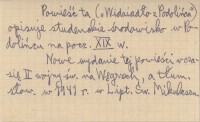 Powieść ta („Widziadło z Podolińca”)
opisuje studenckie środowisko w Po-
dolińcu na pocz. XIX w.
Nowe wydanie tej powieści
się II wojny św. na Węgrzech, a tłum.
słow. w 1941 r. w Lipt. Św. Mikulaszu.